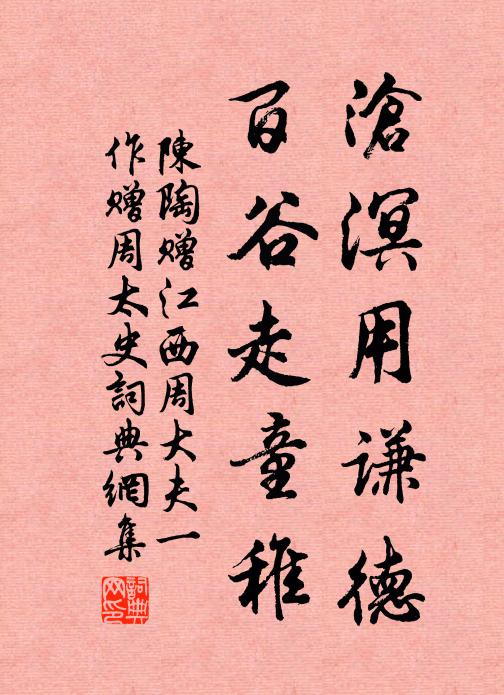 滄溟用謙德
百谷走童稚
陳陶贈江西周大夫一
作贈周太史詞典網集
詞典網印